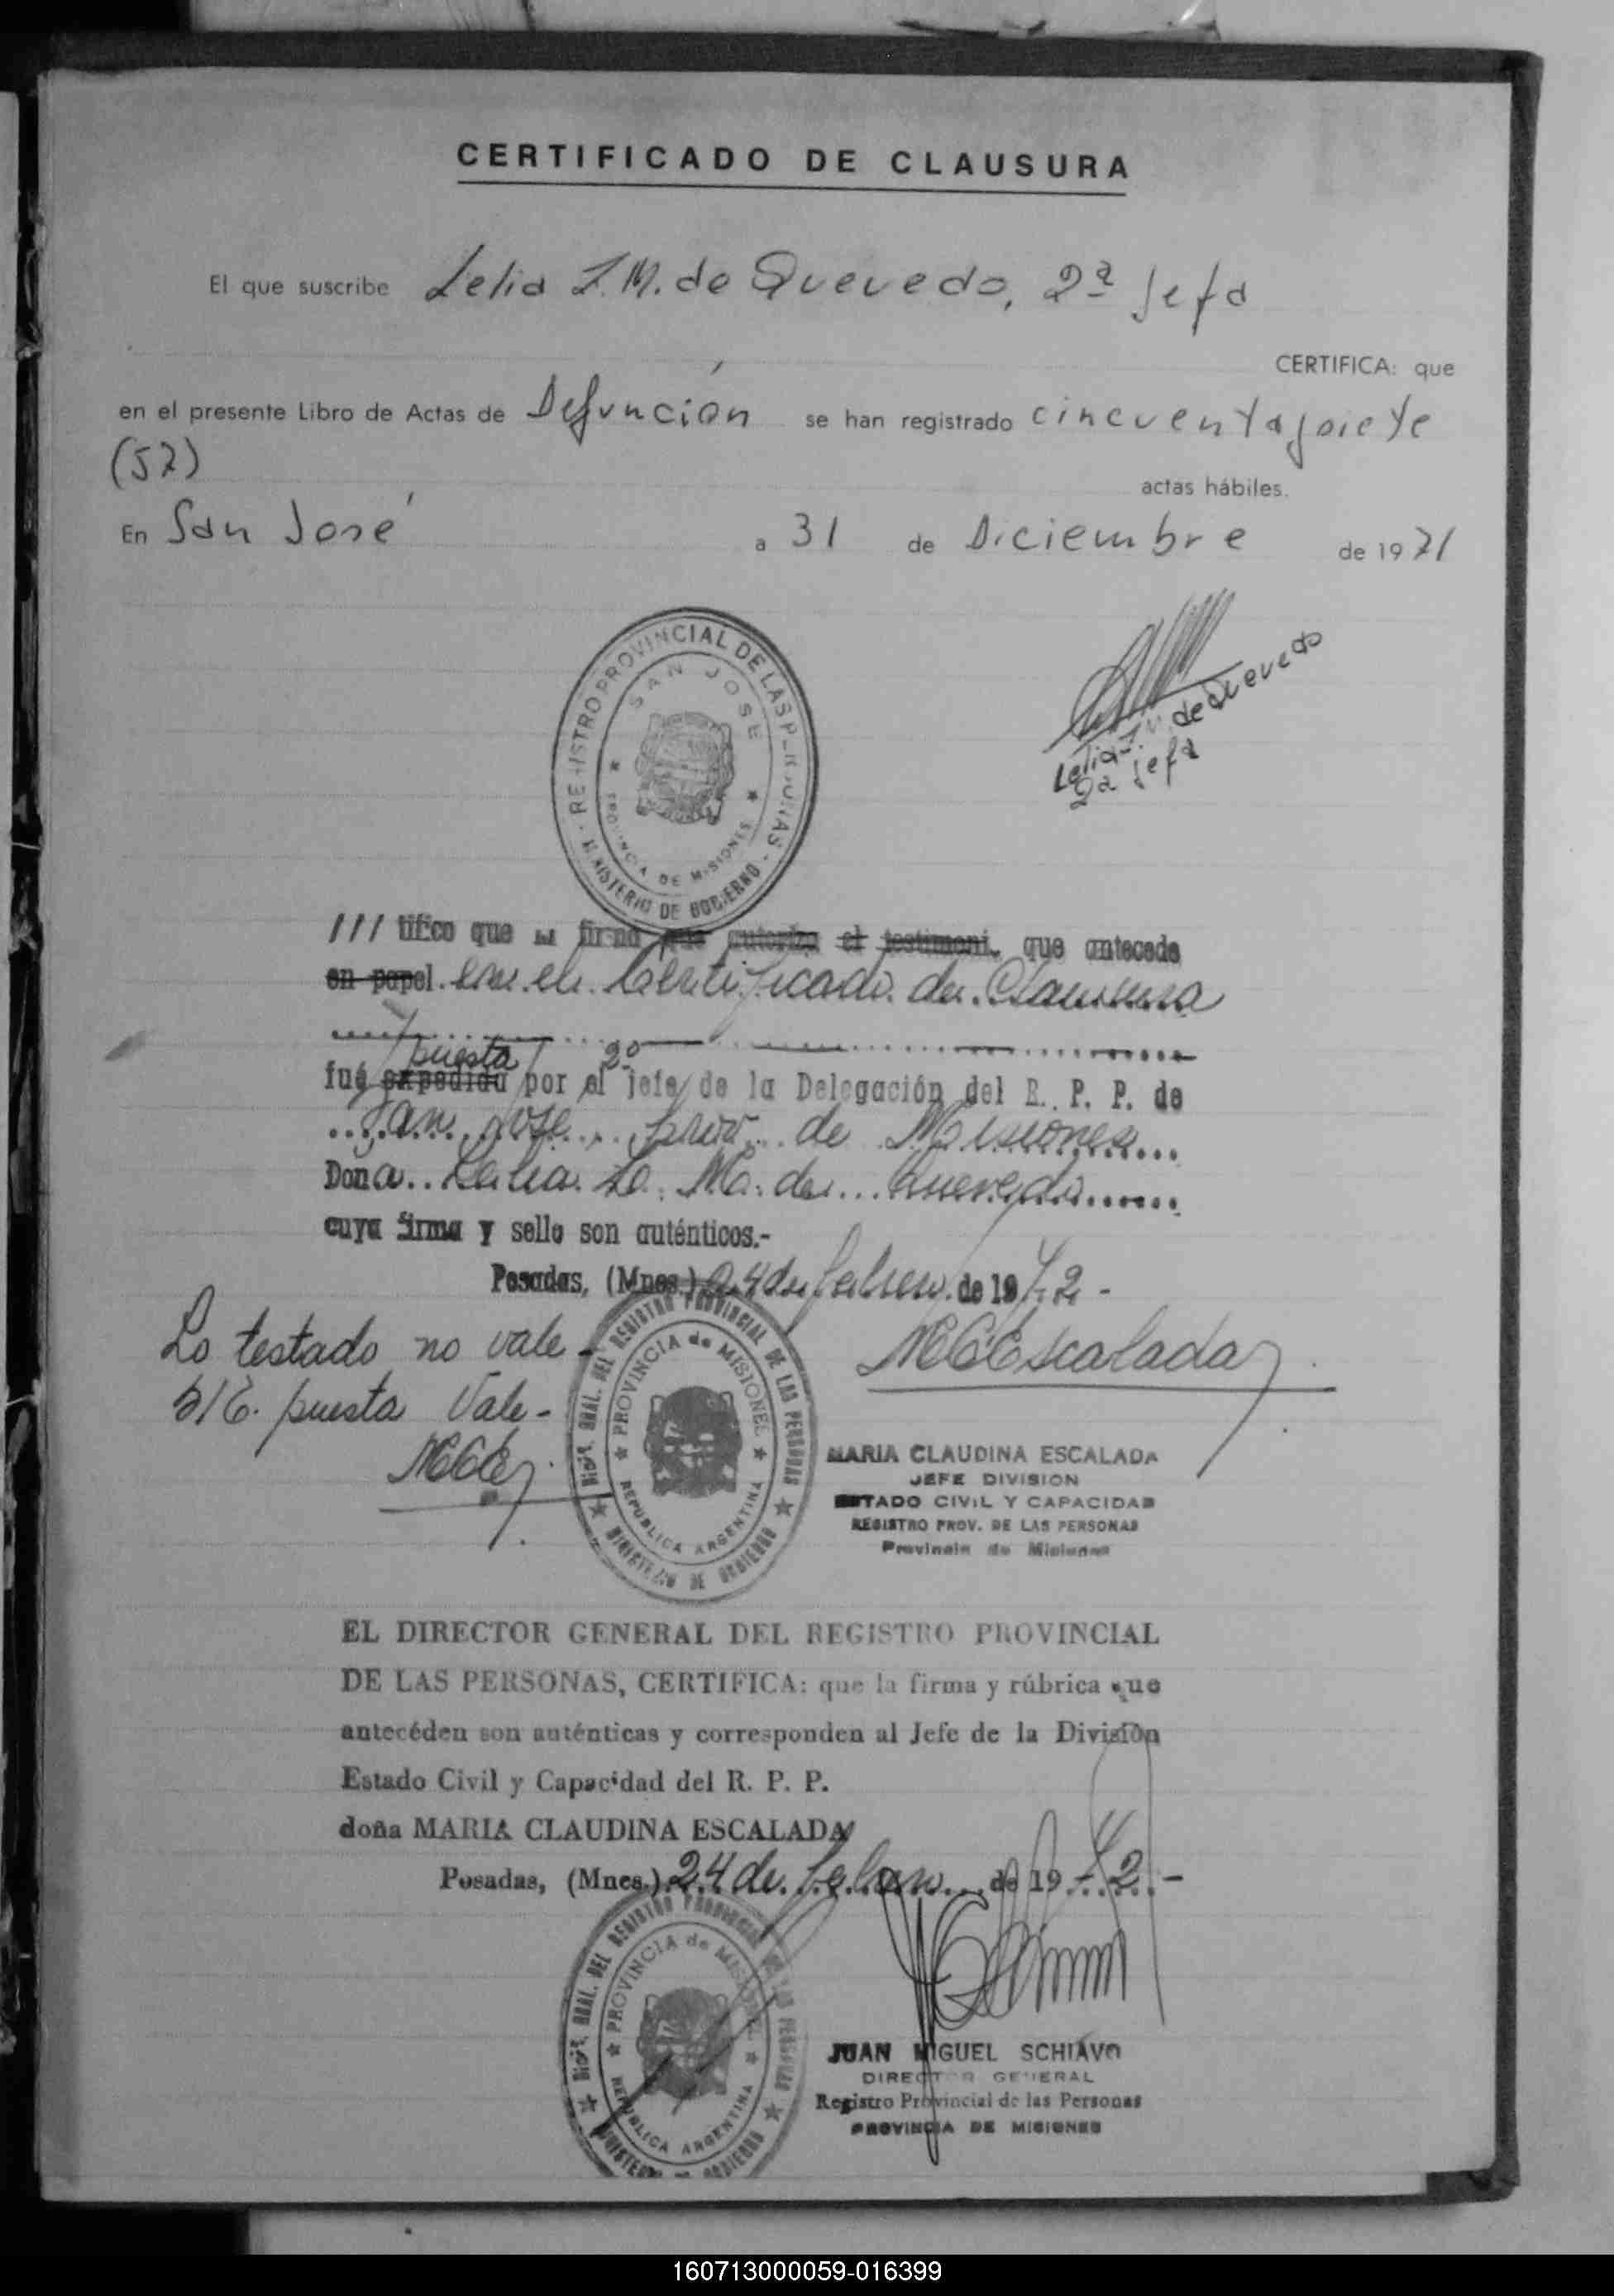 CERTIFICADO DE CLAUSURA
El que suscribe Lelia I. M. de Quevedo, 2ª Jefa
CERTIFICA: que
en el presente Libro de Actas de Defunción se han registrado cincuenta y siete
(57)
actas hábiles.
En San José a 31 de Diciembre de 1971
REGISTRO PROVINCIAL DE LAS PERSONAS
SAN JOSE
PROVINCIA DE MISIONES
MINISTERIO DE GOBIERNO
Lelia I. M. de Quevedo
2a Jefa
/// tifico que la firma que autoriza el testimoni. que antecede
en papel. en el Certificado de Clausura
puesta 2º
fué expedida por el jefe de la Delegación del R. P. P. de
San José, Prov. de Misiones
Dona Lelia I. M. de Quevedo
cuya firma y sello son auténticos.-
Posadas, (Mnes.) 24 de febrero de 1972-
Lo testado no vale-
S/E. puesta Vale-
MCEscalada
DIRÓN. GRAL. DEL REGISTRO PROVINCIAL DE LAS PERSONAS
PROVINCIA de MISIONES
REPUBLICA ARGENTINA
MINISTERIO DE GOBIERNO
MARIA CLAUDINA ESCALADA
JEFE DIVISION
ESTADO CIVIL Y CAPACIDAD
REGISTRO PROV. DE LAS PERSONAS
Provincia de Misiones
EL DIRECTOR GENERAL DEL REGISTRO PROVINCIAL
DE LAS PERSONAS, CERTIFICA: que la firma y rúbrica que
antecéden son auténticas y corresponden al Jefe de la División
Estado Civil y Capacidad del R. P. P.
doña MARIA CLAUDINA ESCALADA
Posadas, (Mnes.) 24 de febrero de 1972-
GRAL. DEL REGISTRO PROVINCIAL DE LAS PERSONAS
PROVINCIA de MISIONES
REPUBLICA ARGENTINA
MINISTERIO DE GOBIERNO
JUAN MIGUEL SCHIAVO
DIRECTOR GENERAL
Registro Provincial de las Personas
PROVINCIA DE MISIONES
160713000059-016399